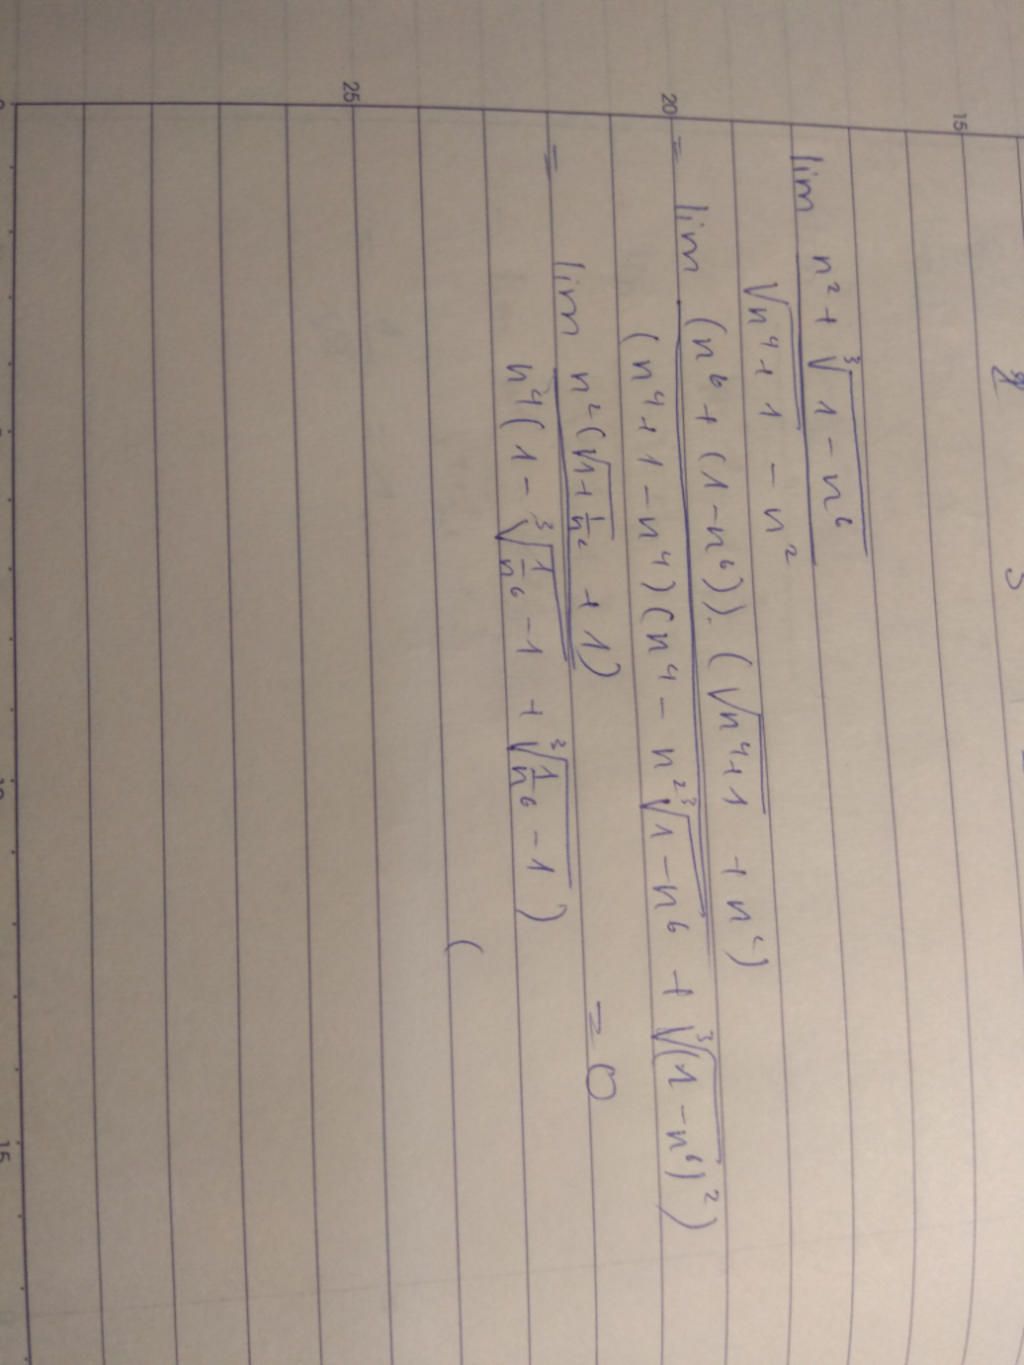 lim (n² + ∛(1 - n⁶)) / (√(n⁴ + 1) - n²)
= lim ((n⁶ + (1 - n⁶)) · (√(n⁴ + 1) + n²)) / ((n⁴ + 1 - n⁴)(n⁴ - n² ∛(1 - n⁶) + ∛((1 - n⁶)²)))
= lim (n² (√(1 + 1/n²) + 1)) / (n⁴ (1 - ∛(1/n⁶ - 1) + ∛(1/n⁶ - 1))) = 0
(
15
20
25